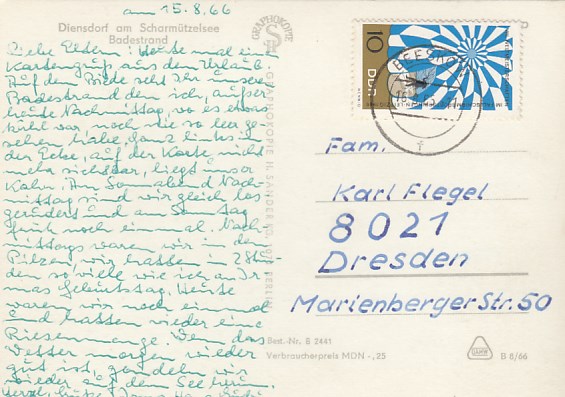 am 15.8.66
Diensdorf am Scharmützelsee
Badestrand
Liebe Eltern! Heute mal einen
Kartengruß aus dem Urlaub.
Auf dem Bilde seht Ihr unseren
Badestrand den ich, außer
heute Nachmittag, wo es etwas
kühl war, noch nie so leer ge-
sehen habe. Ganz links in
der Ecke, auf der Karte nicht
mehr sichtbar, liegt unser
Kahn. Am Sonnabend Nach-
mittag sind wir gleich los-
gerudert und am Sonntag
früh noch einmal. Nach-
mittags waren wir in den
Pilzen, wir hatten in 2 Stun-
den so viele wie ich an
mas Geburtstag. Heute
waren wir noch einmal
und hatten wieder eine
Riesenmenge. Wenn das
Wetter morgen wieder
gut ist, gondeln wir
wieder auf dem See herum.
GRAPHOKOPIE
GRAPHOKOPIE H. SANDER KG, BERLIN
10
DDR
BEESKOW
f
Fam.
Karl Flegel
8021
Dresden
Marienberger Str. 50
Best.-Nr. B 2441
Verbraucherpreis MDN -,25
B 8/66